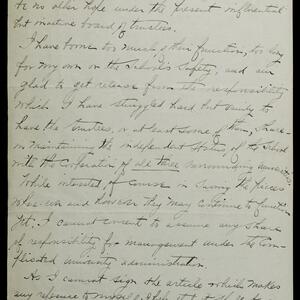 be no other hope under the present influential
but inactive board of trustees.
I have borne too much of their function, too long
for my own or the School's safety, and am
glad to get release from the responsibility
which I have struggled hard but vainly to
have the trustees, or at least some of them, share
in maintaining the independent status of the School
with the cooperation of all three surrounding universities.
While interested, of course in saving the pieces
wherever and however they may continue to function
yet, I cannot consent to assume any share
of responsibility for management under the com-
plicated university administration.
As I cannot sign the article which makes
any reference to